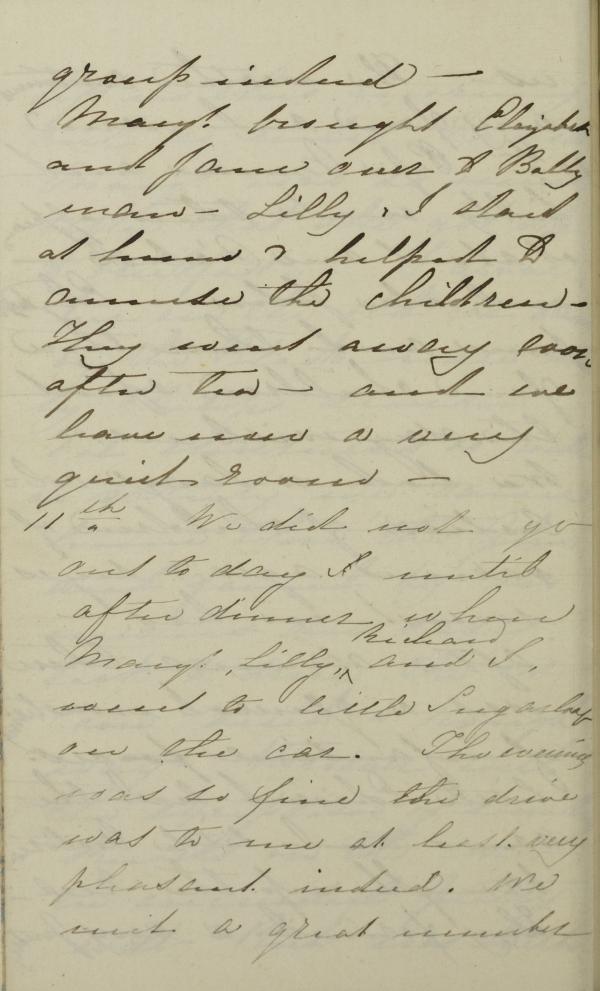 group indeed —
Margt. brought Elizabeth
and Jane over to Bally
man — Lilly & I staid
at home & helped to
amuse the children —
They went away soon
after tea — and we
have now a very
quiet room —
11th We did not go
out to day until
after dinner when
Richard
Margt. Lilly, and I,
went to little Sugarloaf
on the car. The evening
was so fine the drive
was to me at least very
pleasant indeed. We
met a great number